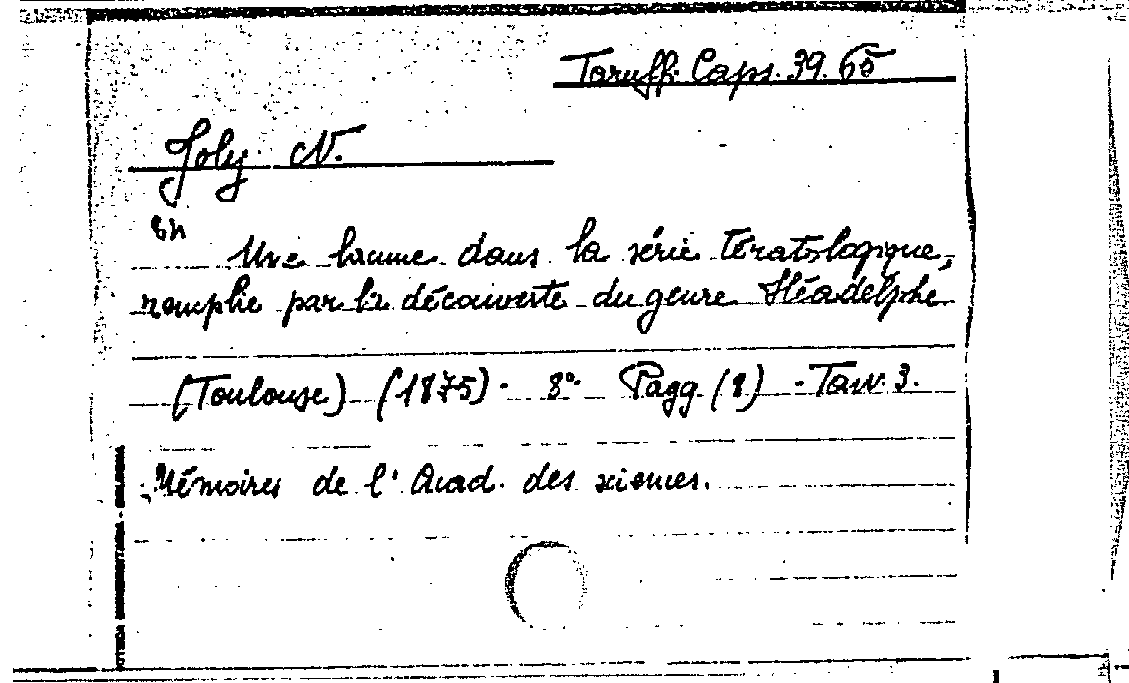 Taruffi Caps. 39. 65
Joly. N.
Une lacune dans la série tératologique,
remplie par la découverte du genre Iléadelphe
(Toulouse) (1875)- 8º- Pagg (8) -Tav. 3.
Mémoires de l' Acad. des sciences.